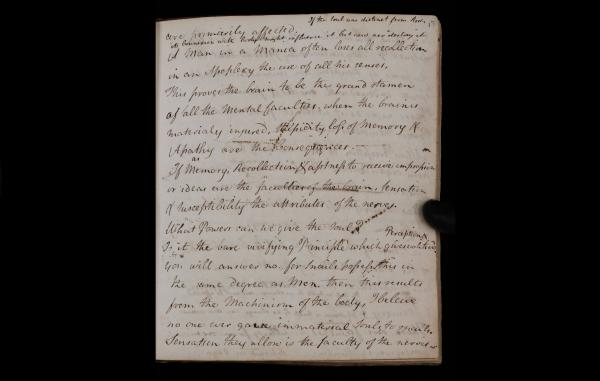 If the Soul was distinct from Body
are primarily affected.
its connexion with body might influence it but could never destroy it
A Man in a Mania often loses all recollection
in an Apoplexy the use of all his senses.
This proves the brain to be the grand stamen
of all the Mental faculties, when the brain is
materialy injured, Stupidity loss of Memory &
Apathy are the Consequences.
as
If Memory, Recollection & aptness to receive impression
or ideas are the faculties of the brain, Sensation
& susceptibility the attributes of the nerves.
What Powers can we give the Soul?
Perception
Is it the bare vivifying Principle which gives
You will answer no. for Snails possess this in
the same degree as Men. then this results
from the Machinism of the body, I beleive
no one ever gave immaterial Souls to snails.
Sensation they allow is the faculty of the nerves